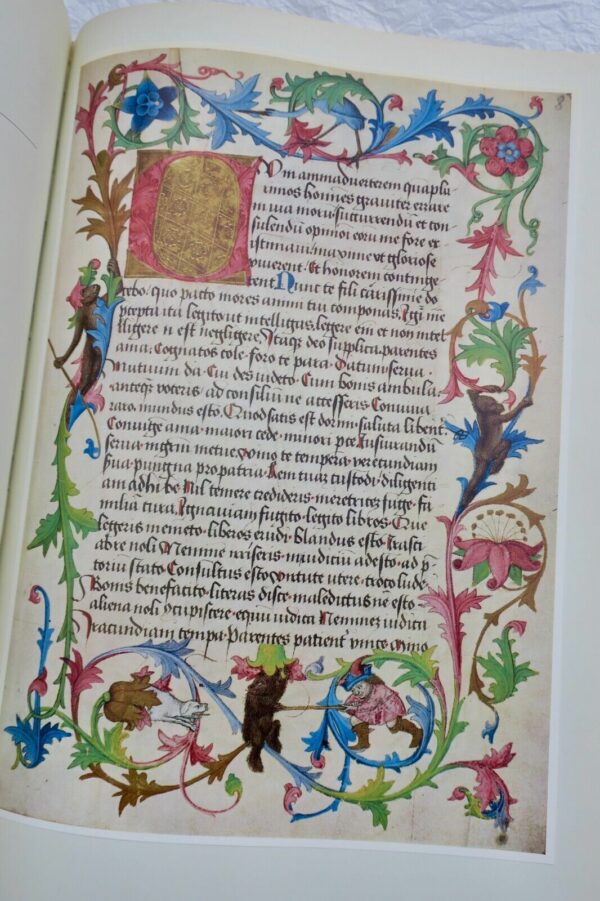 8
Cum animadverterem quāplu
rimos homīes graviter errare
in via morū succurrendū et con
sulendum opinioī eorū me fore et
istimavi maxīme ut gloriose
viverent. Et honorem continge
rent Nunc te fili carissime do
cebo. quo pacto mores animi tui componas. Igit me
precepta ita legito ut intelligas. legere em et non intel
lligere n est negligere. Itaque deo supplica. parentes
ama. Cognatos cole. foro te para. Datum serva.
Mutuum da. Cui des videto. Cum bonis ambula.
anteqͣ voceris. ad consiliū ne accesseris Conviva
raro. mundus esto. Quod satis est dormi. saluta libent.
Coniuge ama. maiori cede. minori pce. Iusiurandū
serva. mgrm metue. vino te tempera. verecundiam
serva pungna pro patria. Rem tuā custodi. diligenti
am adhibe. Nil temere credideris. meretrices fuge. fa
miliā cura. Ignaviam fugito. legito libros. Que
legeris memeto. liberos erudi. blandus esto. Irasci
ab re noli. Neminē irriseris. in iudiciū adesto. ad p
toriū stato Consultus esto. virtute utere. troco lude.
Bonis benefacito. literas disce. maledictus nē esto
aliena noli cōcupiscere. equū iudica Neminez iudica
Iracundiam tempa. Parentes patient vince. Minio